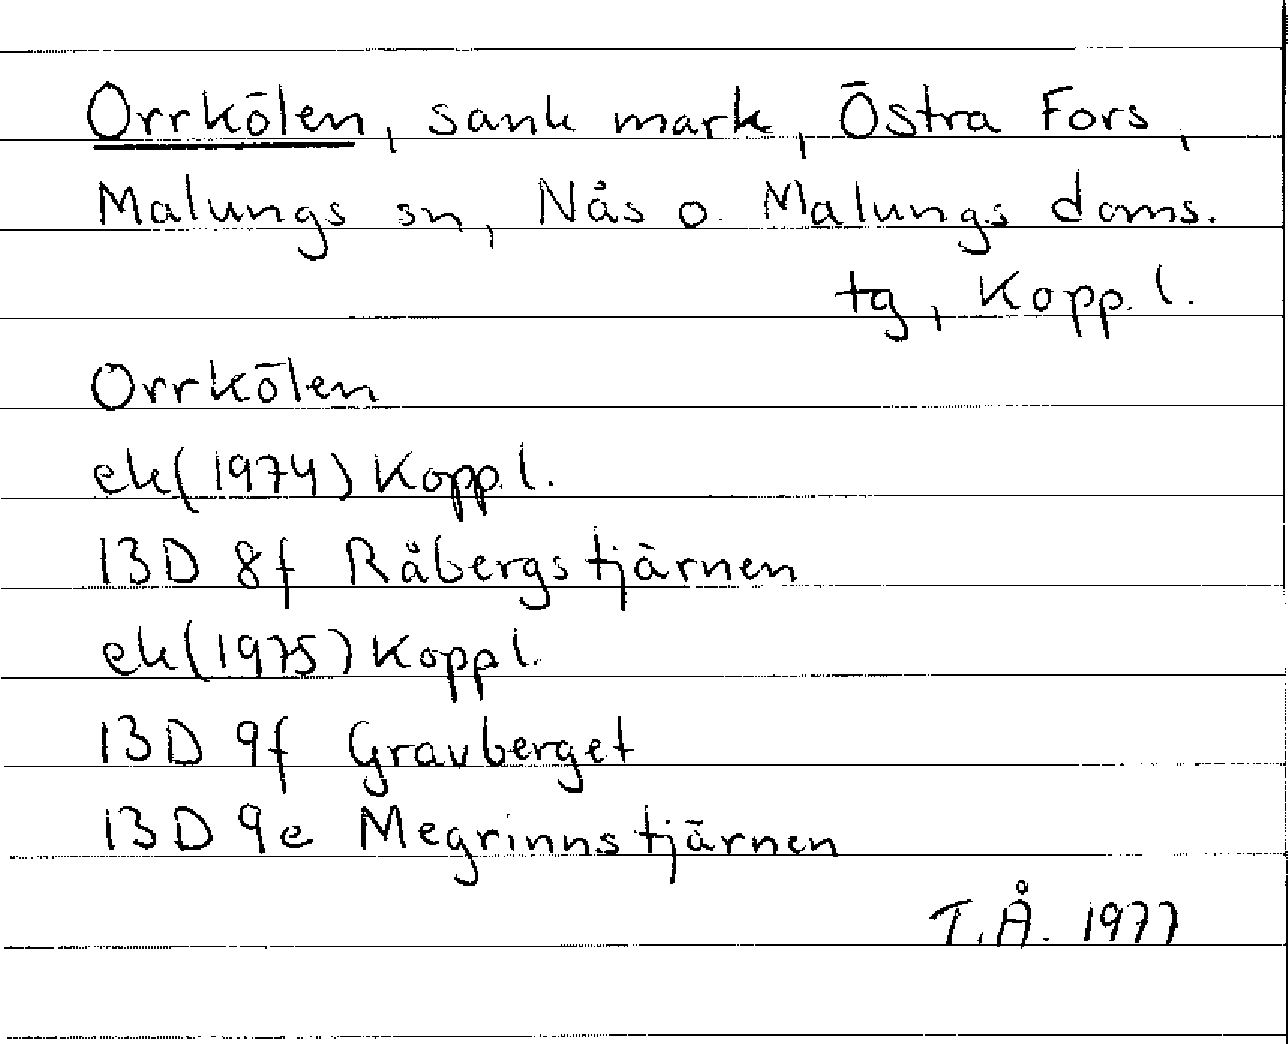 Orrkölen, sank mark, Östra Fors,
Malungs sn, Nås o. Malungs doms.
tg, Kopp. l.
Orrkölen
ek (1974) Kopp l.
13D 8f Råbergstjärnen
ek (1975) Kopp l.
13D 9f Gravberget
13D 9e Megrinnstjärnen
T.Å. 1977